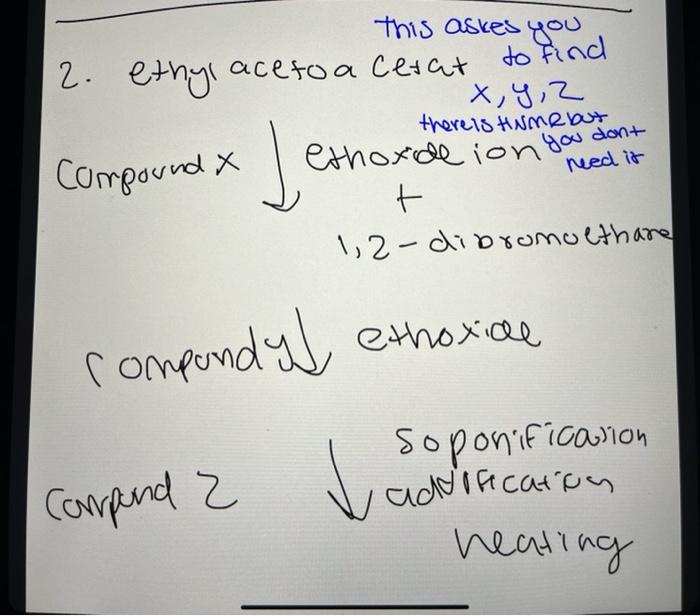 this askes you
to find
x, y, z
there is HNMR but
you dont
need it
2. ethyl acetoacetat
Compound x
ethoxide ion
+
1,2-dibromoethane
Compound y
ethoxide
Compound Z
soponification
heating